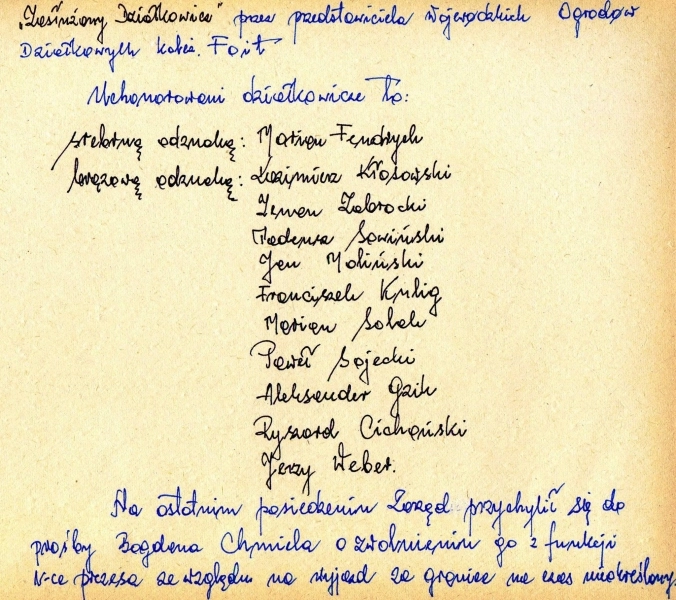 "Zasłużony Działkowicz" przez przedstawiciela Wojewódzkich Ogrodów
Działkowych kole. Foit
Uchonorowani działkowicze to:
srebrną odznaką: Marian Fendrych
brązową odznaką: Kazimierz Kłosowski
Zenon Zabrocki
Tadeusz Sowiński
Jan Maliński
Franciszek Kulig
Marian Sobek
Paweł Sojecki
Aleksander Gzik
Ryszard Cichański
Jerzy Weber.
Na ostatnim posiedzeniu Zarząd przychylił się do
prośby Bogdana Chmiela o zwolnieniu go z funkcji
V-ce prezesa ze względu na wyjazd za granicę na czas nieokreślony.